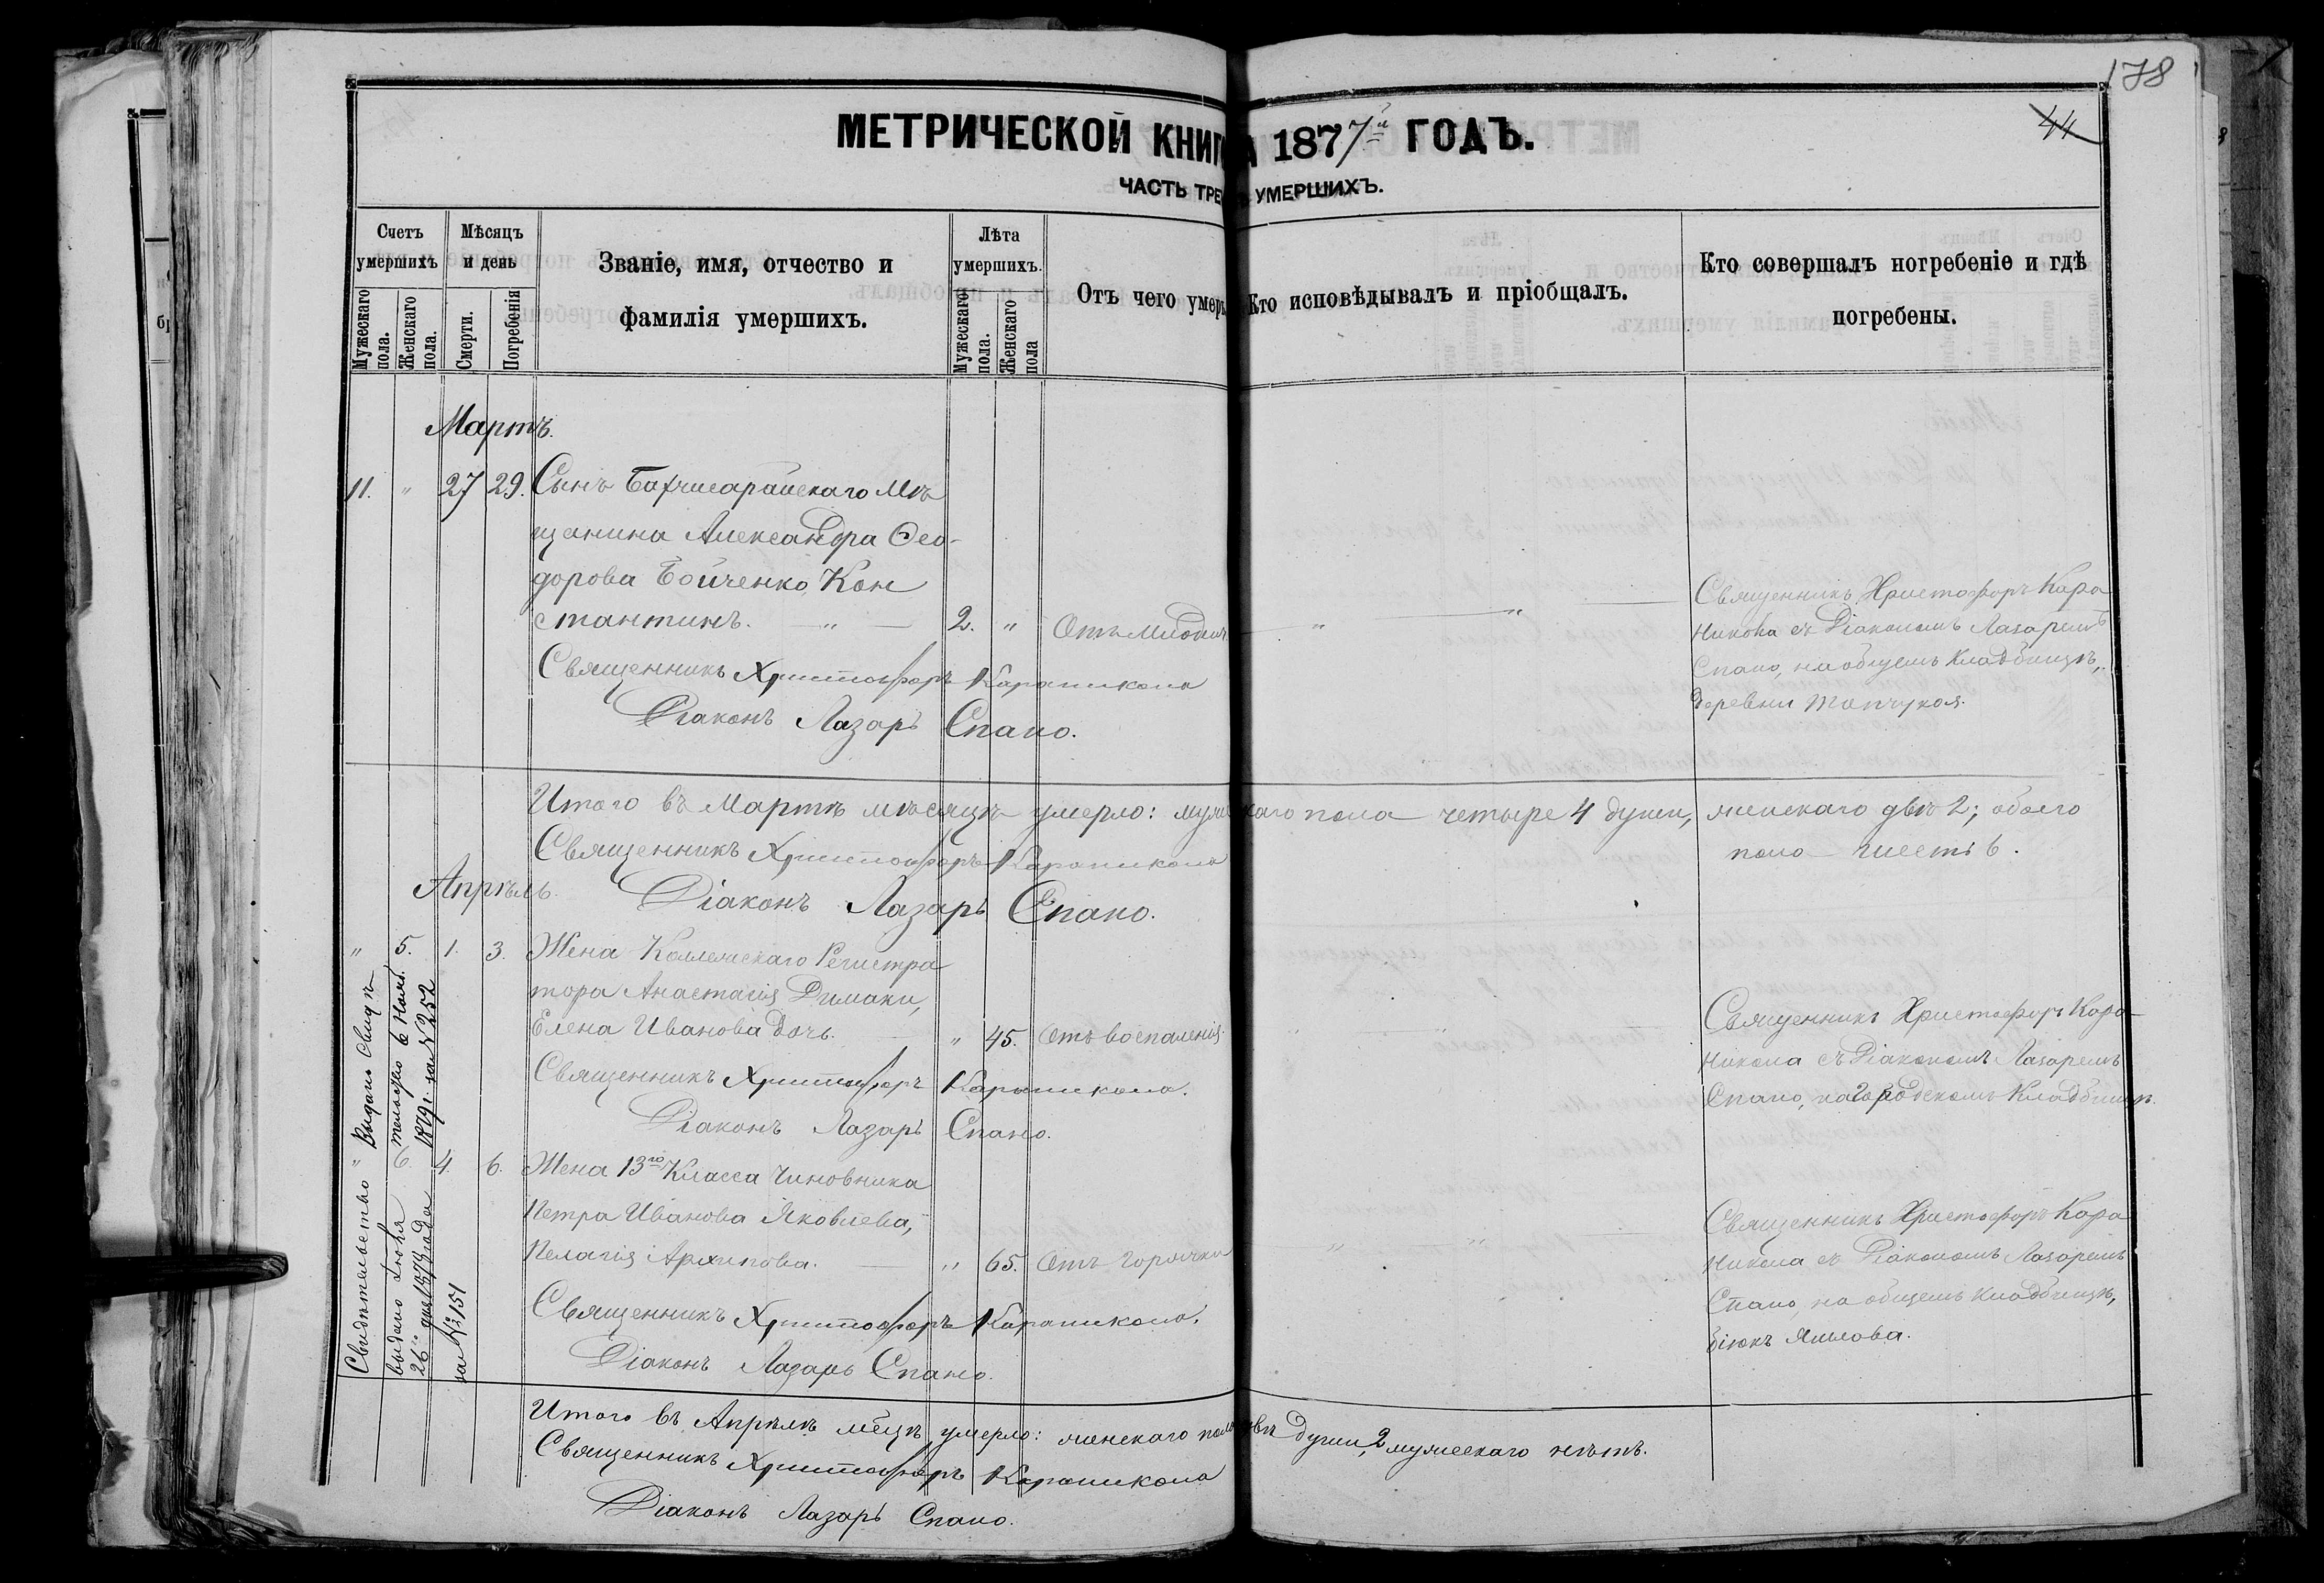 178
44
МЕТРИЧЕСКОЙ КНИГ А 1877й ГОДЪ.
ЧАСТЬ ТРЕ УМЕРШИХЪ.
Счетъ умершихъ
Мужескаго пола.
Женскаго пола.
Мѣсяцъ и день
Смерти.
Погребенія
Званіе, имя, отчество и
фамилія умершихъ.
Лѣта умершихъ.
Мужескаго пола.
Женскаго пола
Отъ чего умеръ
Кто исповѣдывалъ и пріобщалъ.
Кто совершалъ погребеніе и гдѣ
погребены.
Мартъ.
11. " 27 29. Сынъ Бахчисарайскаго Мѣ
щанина Александра Ѳео-
дорова Бойченко, Кон
стантинъ. " 2. " Отъ " "
Священникъ Христофоръ Кара
никола съ Діакономъ Лазаремъ
Спано, на общемъ кладбищѣ,
деревни Топчукоя.
Священникъ Христофоръ Караникола
Діаконъ Лазарь Спано.
Итого въ Мартѣ мѣсяцѣ умерло: муж каго пола четыре 4 души, женскаго двѣ 2; обоего
пола шесть 6.
Священникъ Христофоръ Караникола
Діаконъ Лазарь Спано.
Апрѣль.
" 5. 1. 3. Жена Коллежскаго Регистра
тора Анастасія Димаки,
Елена Иванова дочь. " 45. Отъ воспаленія
Священникъ Христофоръ Кара-
никола съ Діакономъ Лазаремъ
Спано, на городскомъ Кладбищѣ.
Священникъ Христофоръ Караникола.
Діаконъ Лазарь Спано.
Выдано Свид
6 Нояб.
1879г. за №252
" 6. 4. 6. Жена 13го Класса Чиновника
Петра Иванова Яковлева,
Пелагія Архипова. " 65. Отъ Горячки " "
Священникъ Христофоръ Кара
никола съ Діакономъ Лазаремъ
Спано, на общемъ кладбищѣ,
біюкъ Яшлова.
Священникъ Христофоръ Караникола.
Діаконъ Лазарь Спано.
Свидѣтельство
выдано Іюня
26 дня года
за №151
Итого въ Апрѣлѣ мѣцѣ умерло: женскаго пола двѣ души, 2 мужескаго нѣтъ.
Священникъ Христофоръ Караникола
Діаконъ Лазарь Спано.